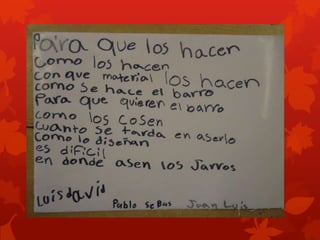 Paira que los hacen
como los hacen
con que material los hacen
como se hace el barro
Para que quieren el barro
como los cosen
cuanto se tarda en aserlo
como lo diseñan
es dificil
en donde asen los Jarros
Luis david
Pablo Sebas
Juan Luis